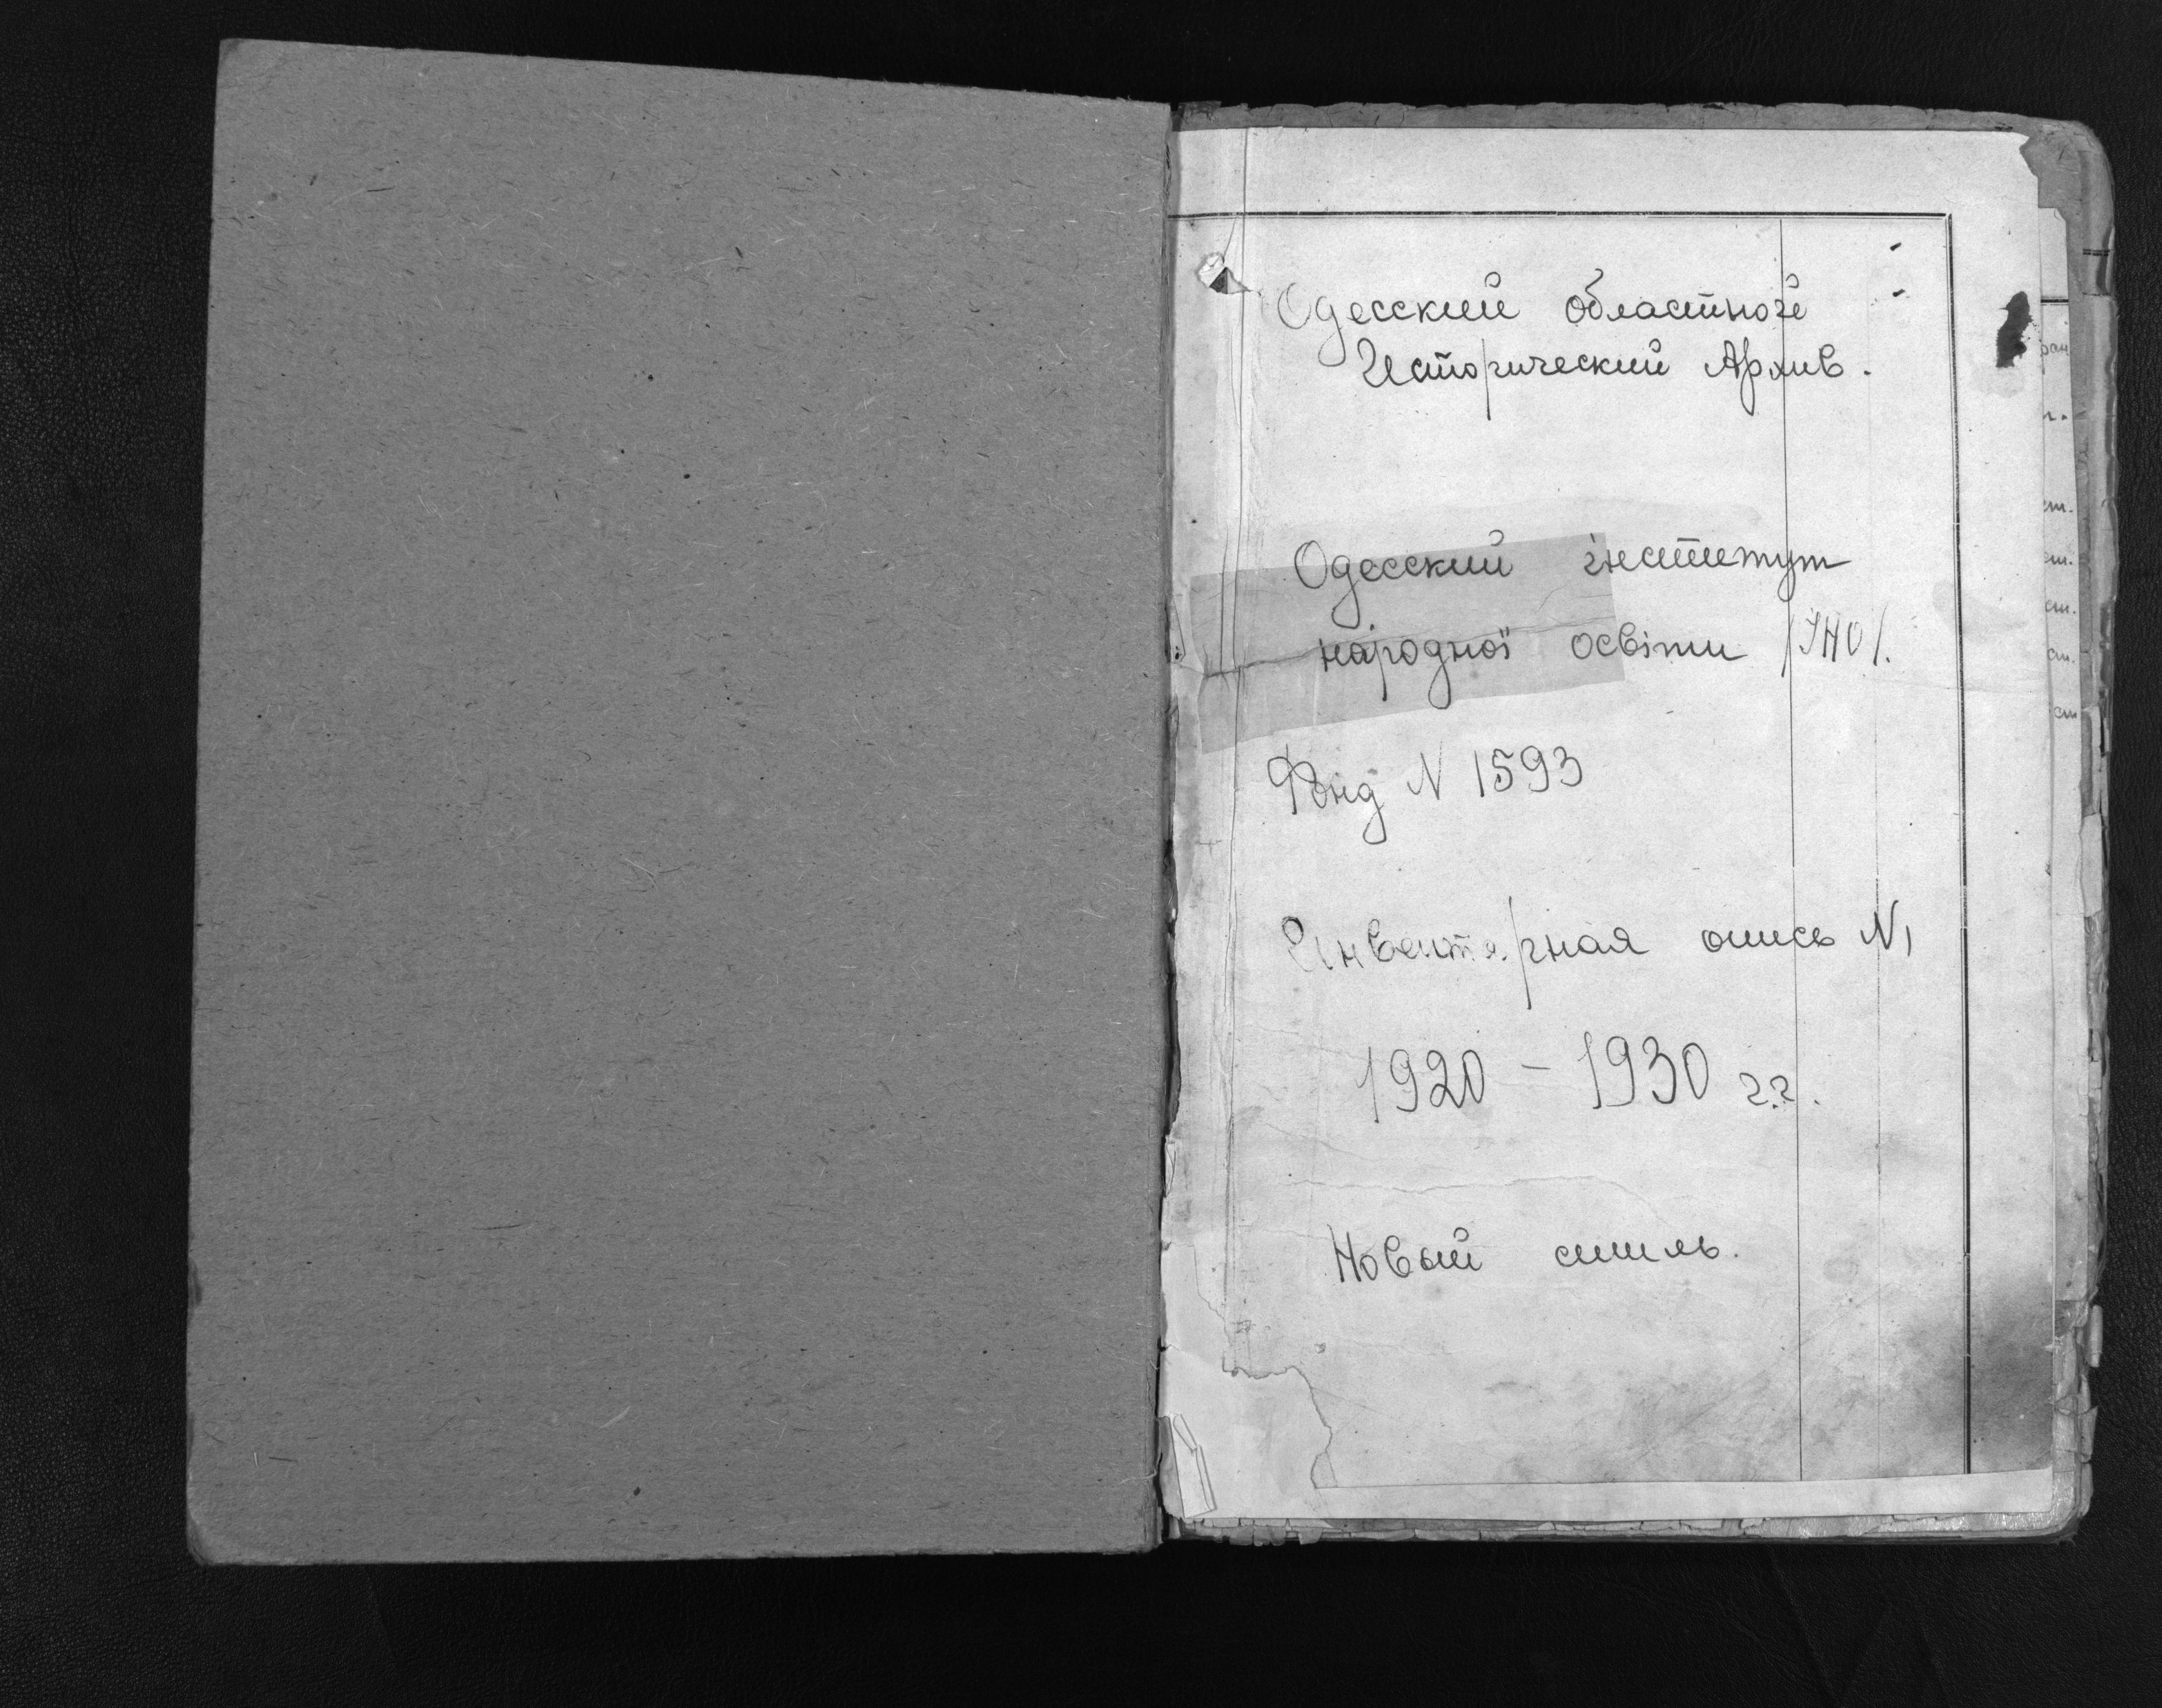 Одесский областной
Исторический Архив.
Одесский інститут
народної освіти /ІНО/.
Фонд N 1593
Инвентарная опись N1
1920 – 1930 г.г.
Новый стиль.